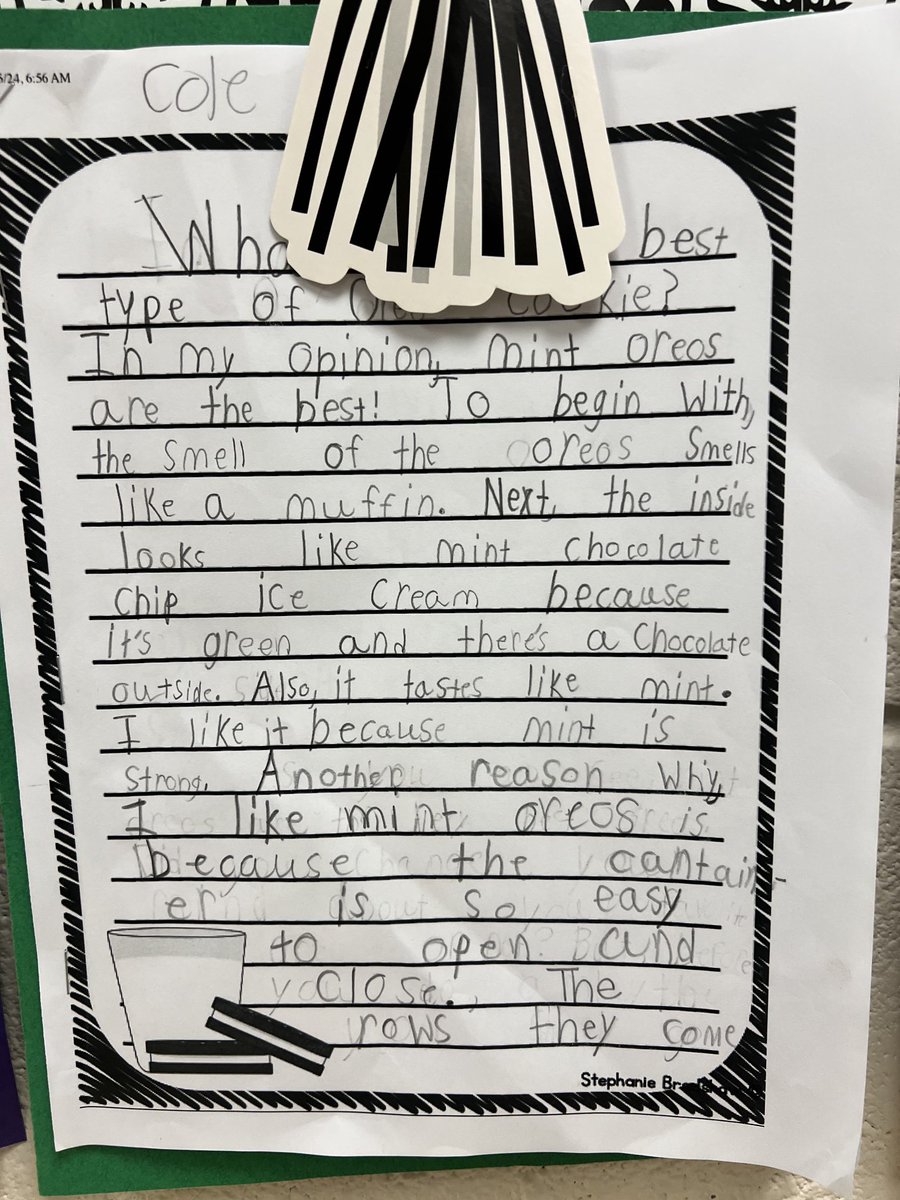 /24, 6:56 AM
Cole
best
type of cookie?
In my opinion, mint oreos
are the best! To begin with,
the smell of the oreos smells
like a muffin. Next, the inside
looks like mint chocolate
chip ice cream because
it's green and there's a chocolate
outside. Also, it tastes like mint.
I like it because mint is
strong. Another reason why,
I like mint oreos is
because the cantain-
er is so easy
to open and
close. The
rows they come
Stephanie